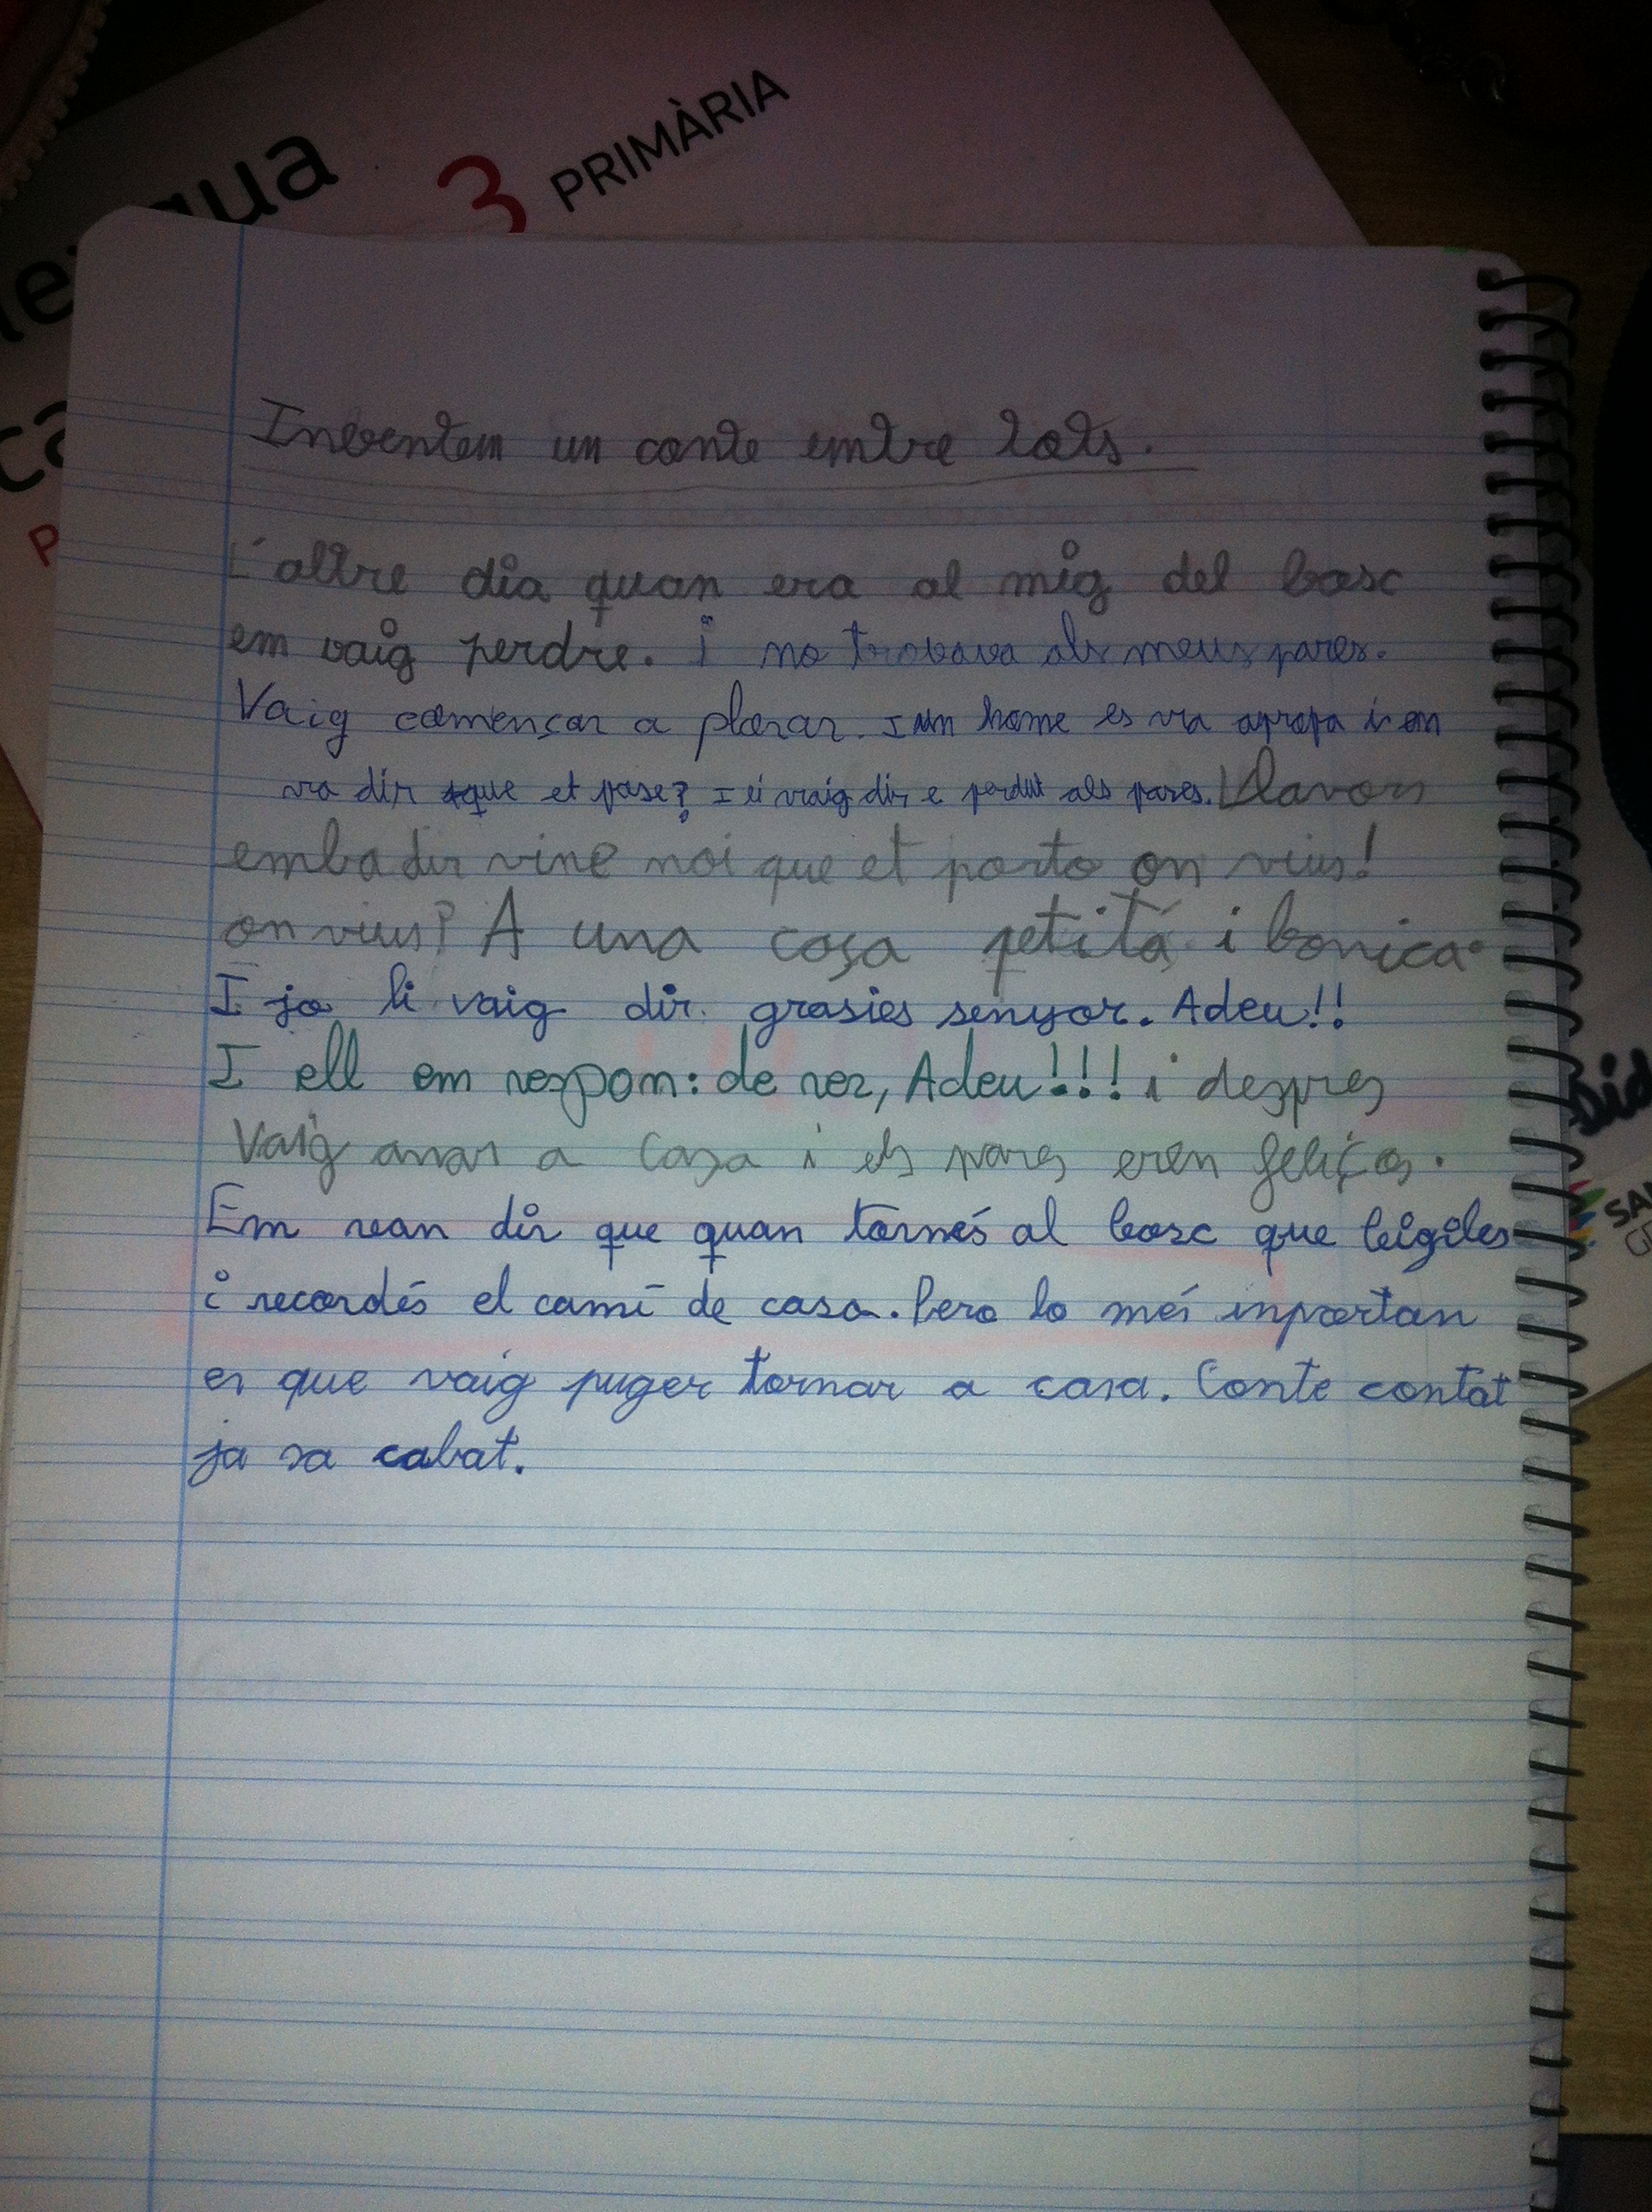 3 PRIMÀRIA
Inventem un conte entre tots.
L'altre dia quan era al mig del bosc
em vaig perdre. i no trobava als meus pares.
Vaig començar a plorar. I un home es va apropa i em
va dir que et pase? I li vaig dir e perdut als pares. Llavors
emba dir vine noi que et porto on vius!
on vius? A una cosa petita i bonica.
I jo li vaig dir grasies senyor. Adeu!!
I ell em respon: de res, Adeu!!! i despres
Vaig anar a casa i els pares eren feliços.
Em van dir que quan tornés al bosc que bigiles
i recordés el camí de casa. Pero lo més inportan
es que vaig puger tornar a casa. Conte contat
ja sa cabat.